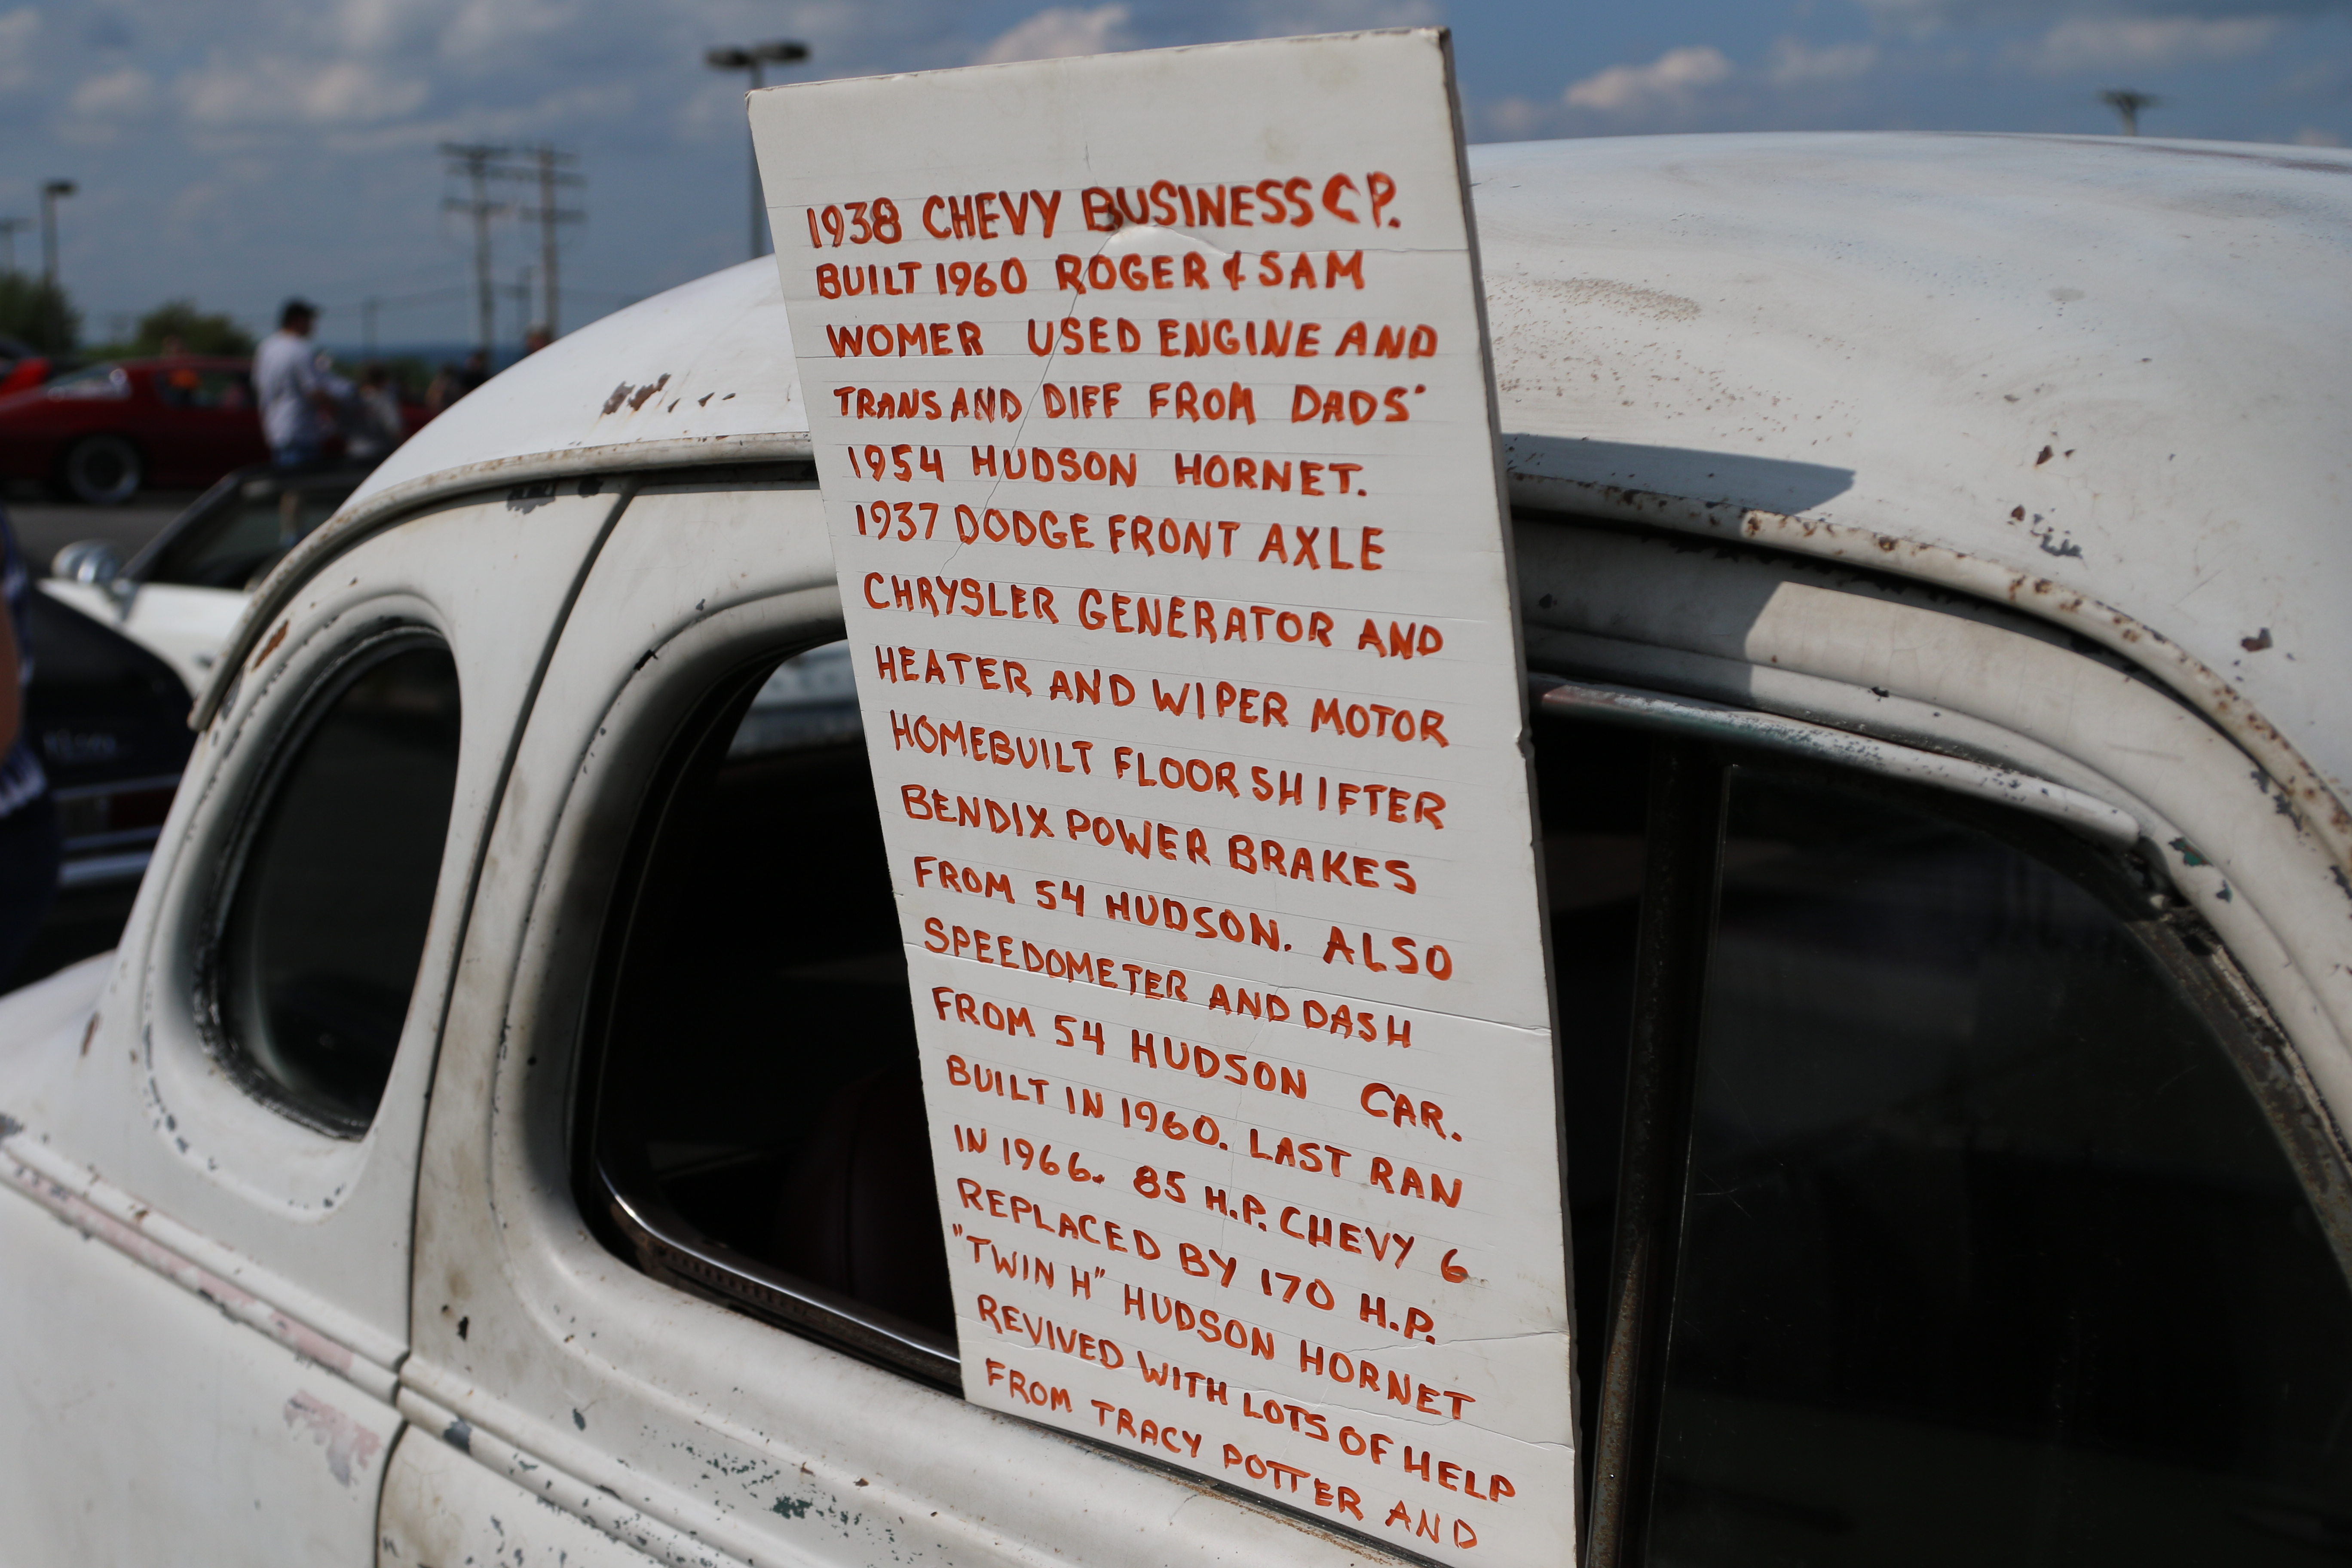 1938 CHEVY BUSINESS CP.
BUILT 1960 ROGER & SAM
WOMER USED ENGINE AND
TRANS AND DIFF FROM DADS'
1954 HUDSON HORNET.
1937 DODGE FRONT AXLE
CHRYSLER GENERATOR AND
HEATER AND WIPER MOTOR
HOMEBUILT FLOOR SHIFTER
BENDIX POWER BRAKES
FROM 54 HUDSON. ALSO
SPEEDOMETER AND DASH
FROM 54 HUDSON CAR.
BUILT IN 1960. LAST RAN
IN 1966. 85 H.P. CHEVY 6
REPLACED BY 170 H.P.
"TWIN H" HUDSON HORNET
REVIVED WITH LOTS OF HELP
FROM TRACY POTTER AND